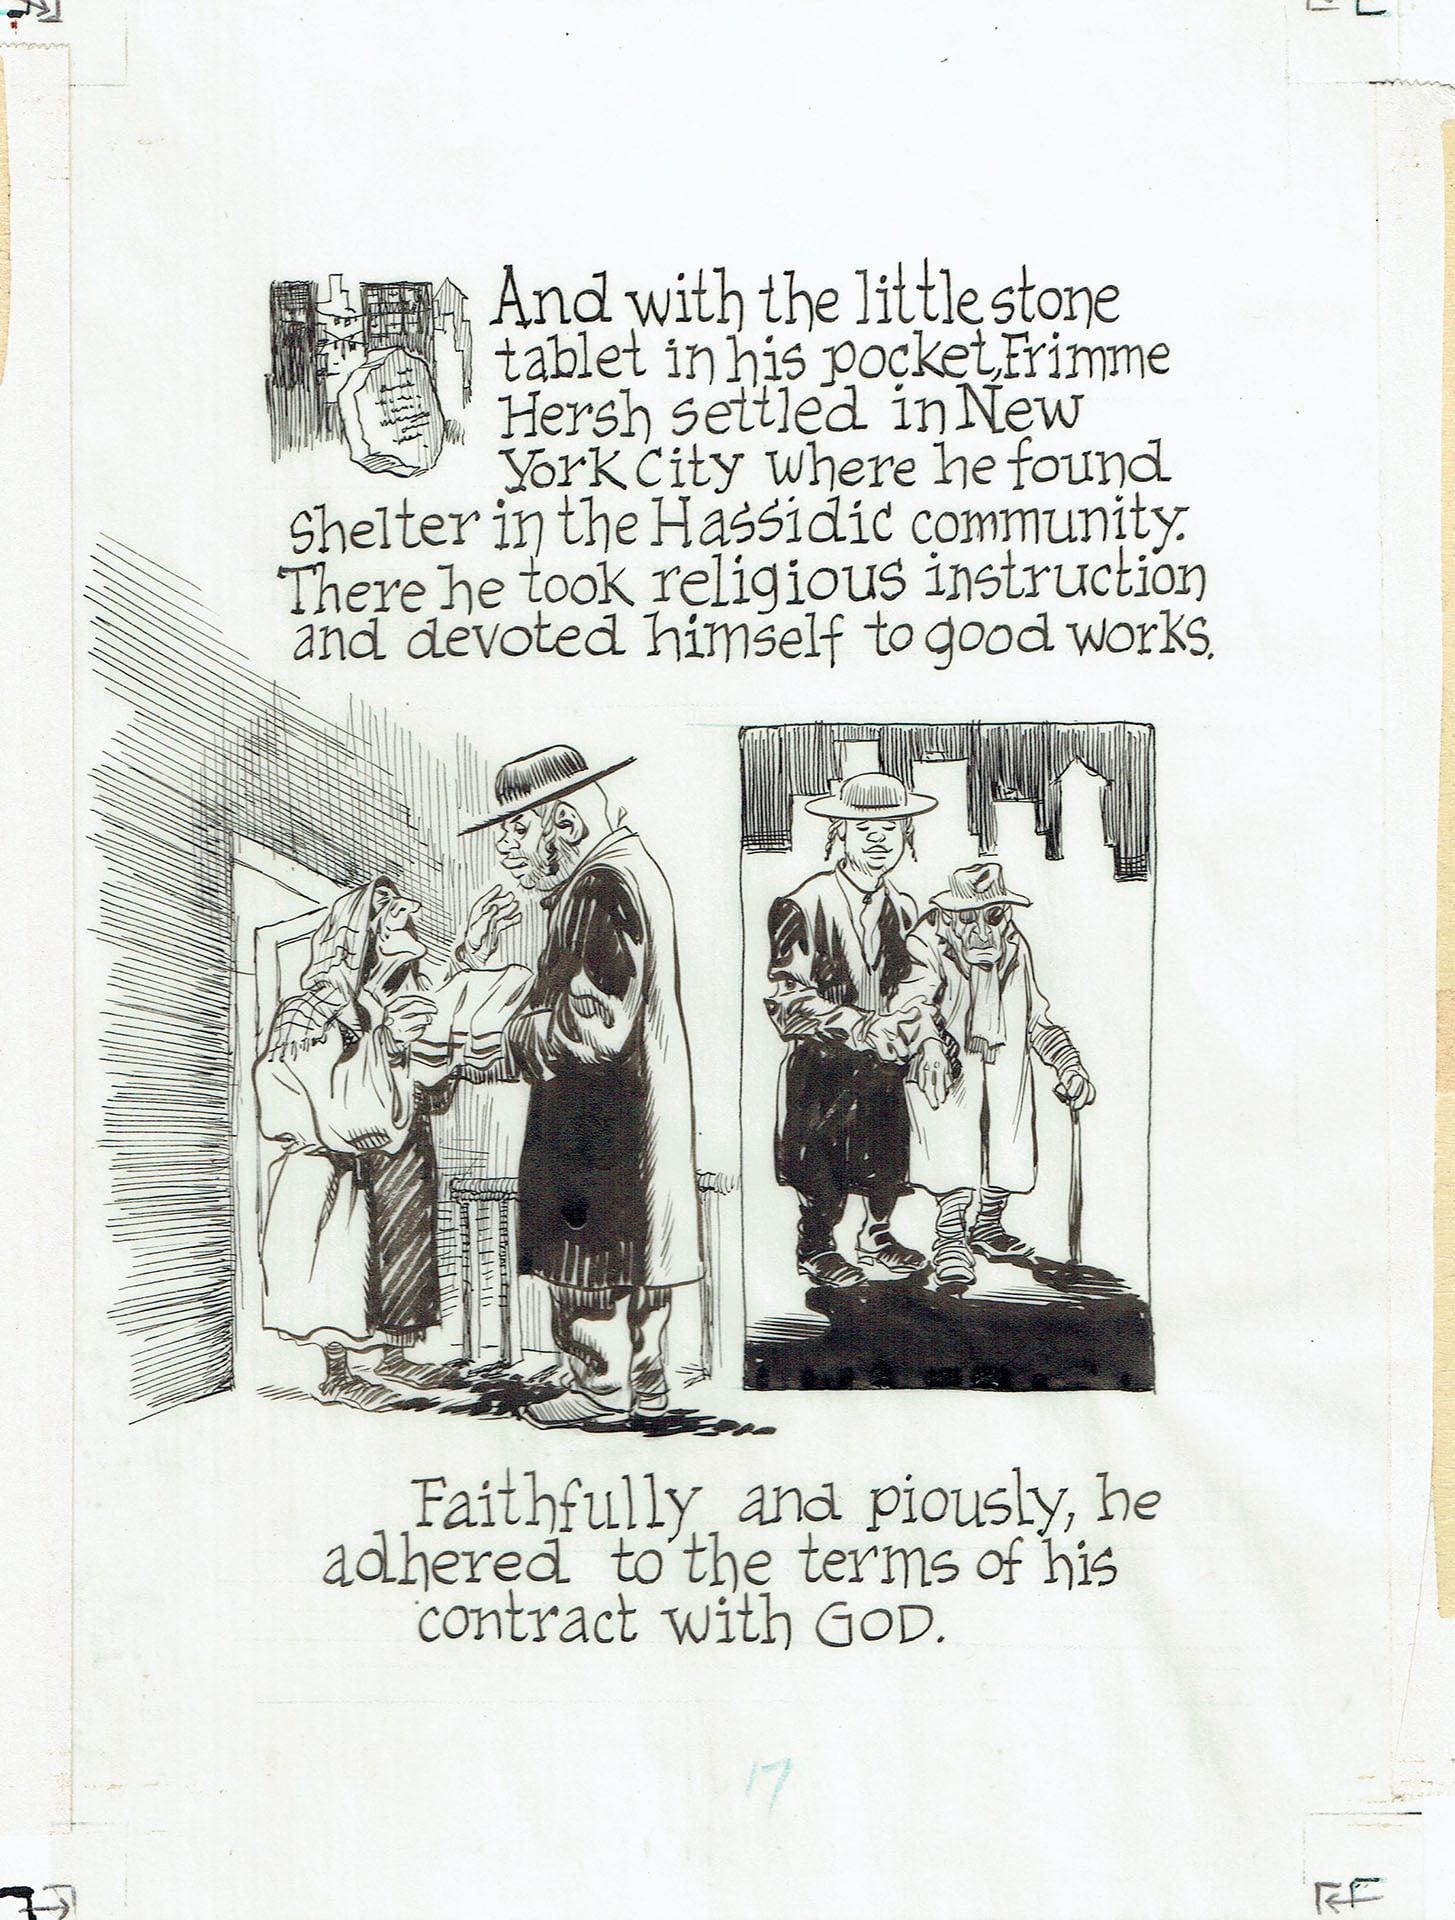 And with the little stone
tablet in his pocket, Frimme
Hersh settled in New
York City where he found
shelter in the Hassidic community.
There he took religious instruction
and devoted himself to good works.
Faithfully and piously, he
adhered to the terms of his
contract with GOD.
17